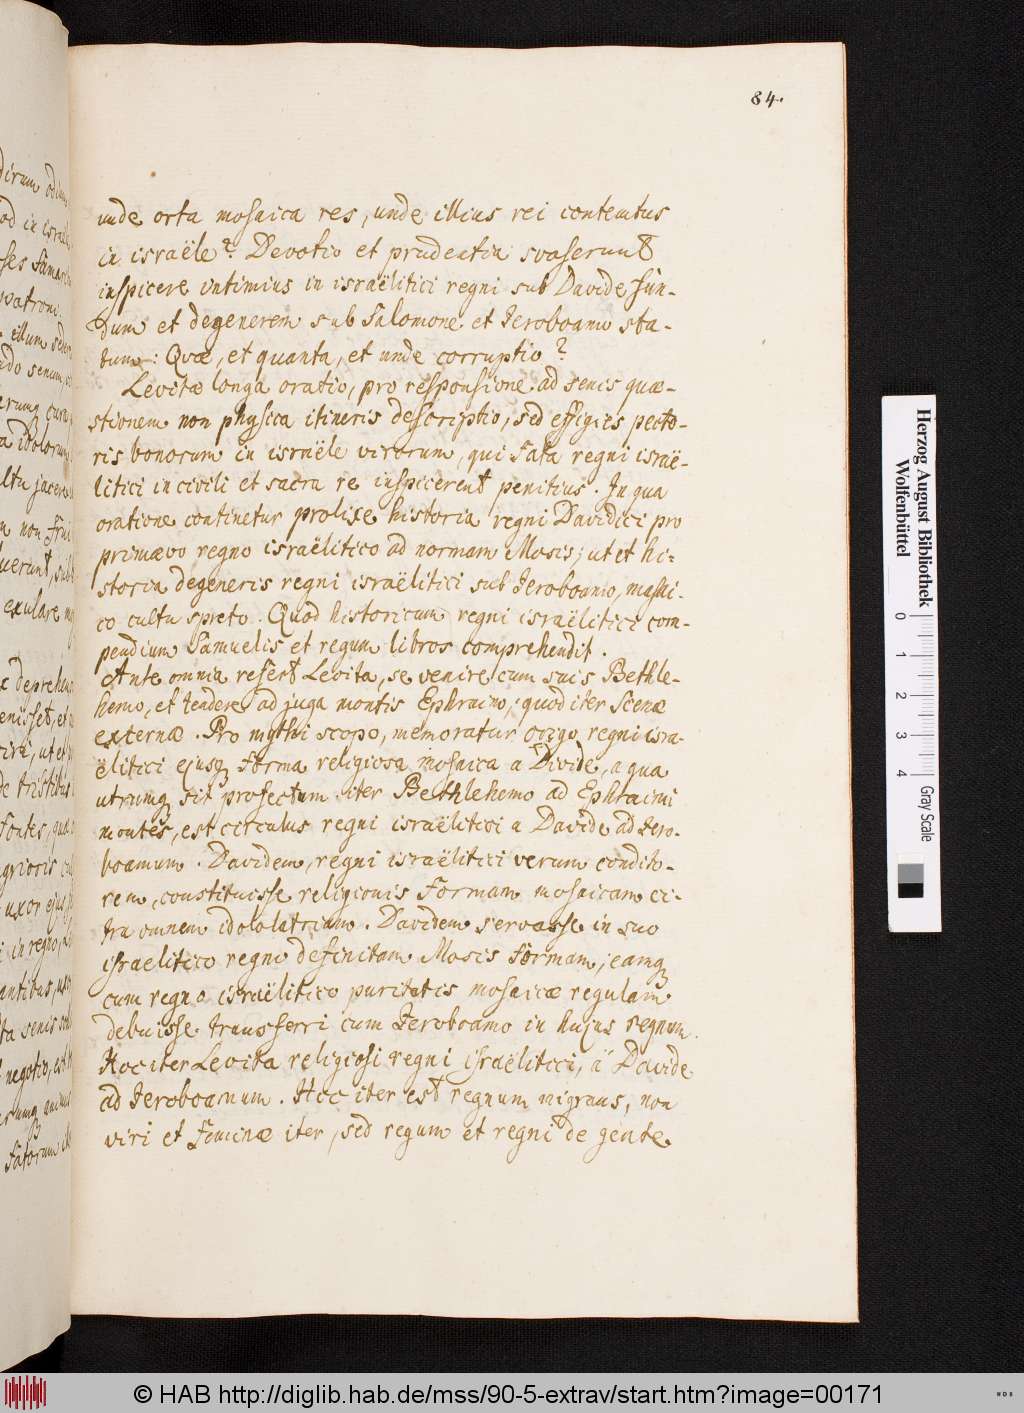 84.
unde orta mosaica res, unde illius rei contemtus
in israële? Devotio et prudentia svaserunt
inspicere intimius in israëlitici regni sub Davide fun-
dum et degenerem sub Salomone et Ieroboamo sta-
tum: Qvæ, et quanta, et unde corruptio?
Levitæ longa oratio, pro responsione ad senis quæ-
stionem non physica itineris descriptio, sed effigies pecto-
ris bonorum in israële virorum, qui fata regni israë-
litici in civili et sacra re inspicerent penitius. In qua
oratione continetur prolixe historia regni Davidici pro
primævo regno israëlitico ad normam Mosis; ut et hi-
storia degeneris regni israëlitici sub Ieroboamo, mosai-
co cultu spreto. Quod historicum regni israëlitici com-
pendium Samuelis et regum libros comprehendit.
Ante omnia refert Levita, se venire cum suis Bethle-
hemo, et tendere ad juga montis Ephraimo, quod iter scenæ
externæ. Pro mythi scopo, memoratur origo regni isra-
ëlitici ejusq forma religiosa mosaica a Divide, a qua
utrumq sit profectum iter Bethlehemo ad Ephraimi
montes, est circulus regni israëlitici a Davide ad Iero-
boamum. Davidem, regni israëlitici verum condito-
rem, constituisse religionis formam mosaicam ci-
tra omnem idololatriam. Davidem servasse in suo
israelitico regno definitam Mosis formam; eamq
cum regno israëlitico puritatis mosaicæ regulam
debuisse transferri cum Ieroboamo in hujus regnum.
Hoc iter Levita religiosi regni israëlitici, a Davide
ad Ieroboamum. Hoc iter est regnum migrans, non
viri et feminæ iter, sed regum et regni de gente
Herzog August Bibliothek
Wolfenbüttel
0 1 2 3 4
Gray Scale
© HAB http://diglib.hab.de/mss/90-5-extrav/start.htm?image=00171